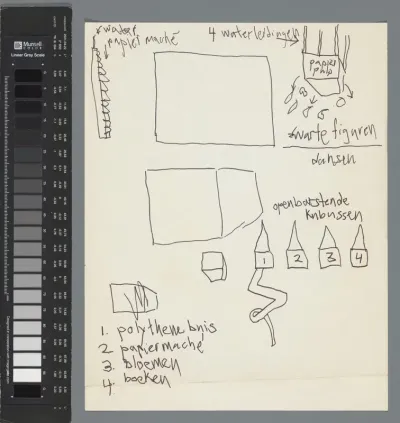 water
papier maché
4 waterleidingen
papier
pulp
zwarte figuren
dansen
openbarstende
kubussen
1 2 3 4
1. polythene buis
2 papiermache
3. bloemen
4. boeken
Munsell
COLOR
Linear Gray Scale